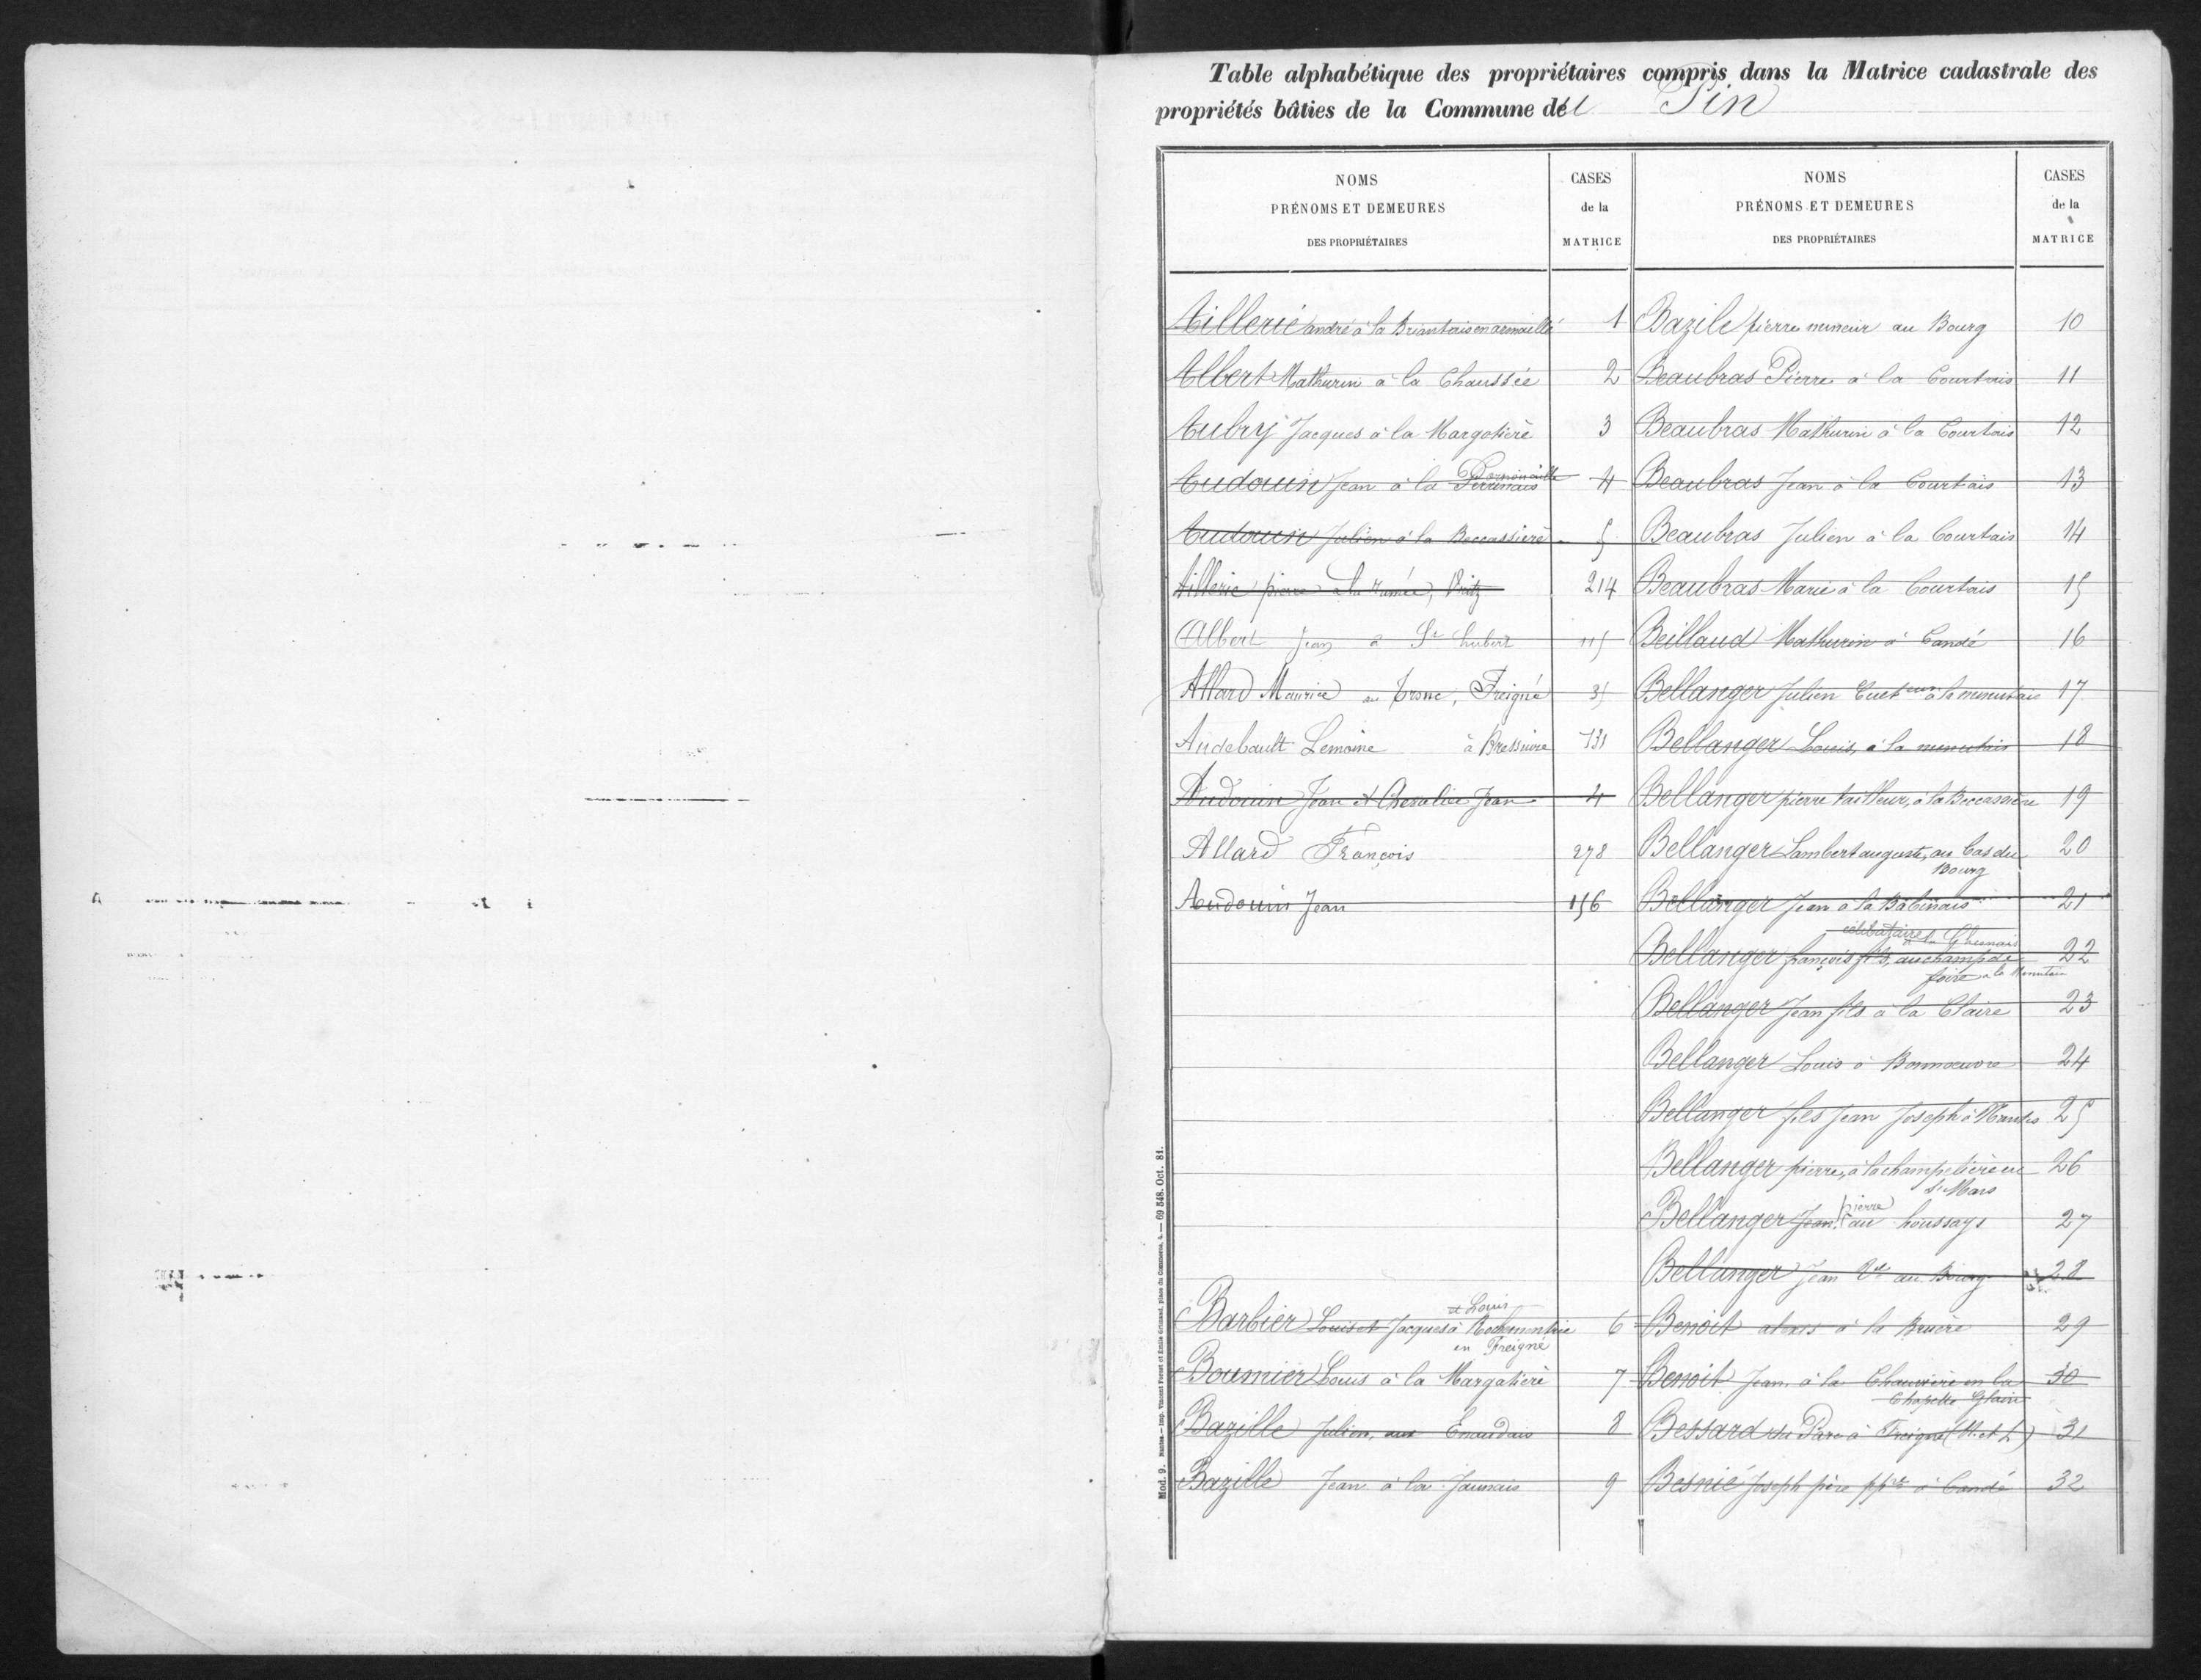 Table alphabétique des propriétaires compris dans la Matrice cadastrale des
propriétés bâties de la Commune de l Pin
NOMS
PRÉNOMS ET DEMEURES
DES PROPRIÉTAIRES
CASES
de la
MATRICE
NOMS
PRÉNOMS ET DEMEURES
DES PROPRIÉTAIRES
CASES
de la
MATRICE
Aillerie andré à la Briantais en armaillé 1
Albert Mathurin à la Chaussée 2
Aubry Jacques à la Margotière 3
Audouin Jean à la Perrinais 4
Audouin Julien à la Beccassière 5
Aillerie pierre à la ramée, Vritz 214
Albert Jean à St hubert 115
Allard Maurice au Tronc, Freigné 35
Audebault Lemoine à Bressuire 731
Audouin Jean et Chevalier Jean 4
Allard François 278
Audouin Jean 156
et Louis
Barbier Louis et Jacques à Rochementrie 6
en Freigné
Boumier Louis à la Margatière 7
Bazille Julien, aux Enaudais 8
Bazille Jean à la Jaunais 9
Bazile pierre mineur au Bourg 10
Beaubras Pierre à la Courtais 11
Beaubras Mathurin à la Courtais 12
Beaubras Jean à la Courtais 13
Beaubras Julien à la Courtais 14
Beaubras Marie à la Courtais 15
Beillaud Mathurin à Candé 16
Bellanger Julien à la menutais 17
Bellanger Louis, à la menutais 18
Bellanger pierre tailleur, à la Beccassière 19
Bellanger Lambert auguste, au bas du 20
Bourg
Bellanger Jean à la Babinais 21
célibataire à la
Bellanger françois fils, au champ de 22
foire à la Menutais
Bellanger Jean fils à la Claire 23
Bellanger Louis à Bonnoeuvre 24
Bellanger fils Jean Joseph à Nantes 25
Bellanger pierre, à la champelière en 26
St Mars
pierre
Bellanger Jean au houssays 27
Bellanger Jean Ve au Bourg 28
Benoit alexis à la Bruère 29
Benoit Jean, à la Chauvière en la 30
Chapelle Glain
Bessard du Parc à Freigné (M. et L) 31
Besnié Joseph père ppre à Candé 32
Mod. 9. Nantes. — Imp. Vincent Forest et Émile Grimaud, place du Commerce, 4. — 69 548. Oct. 81.